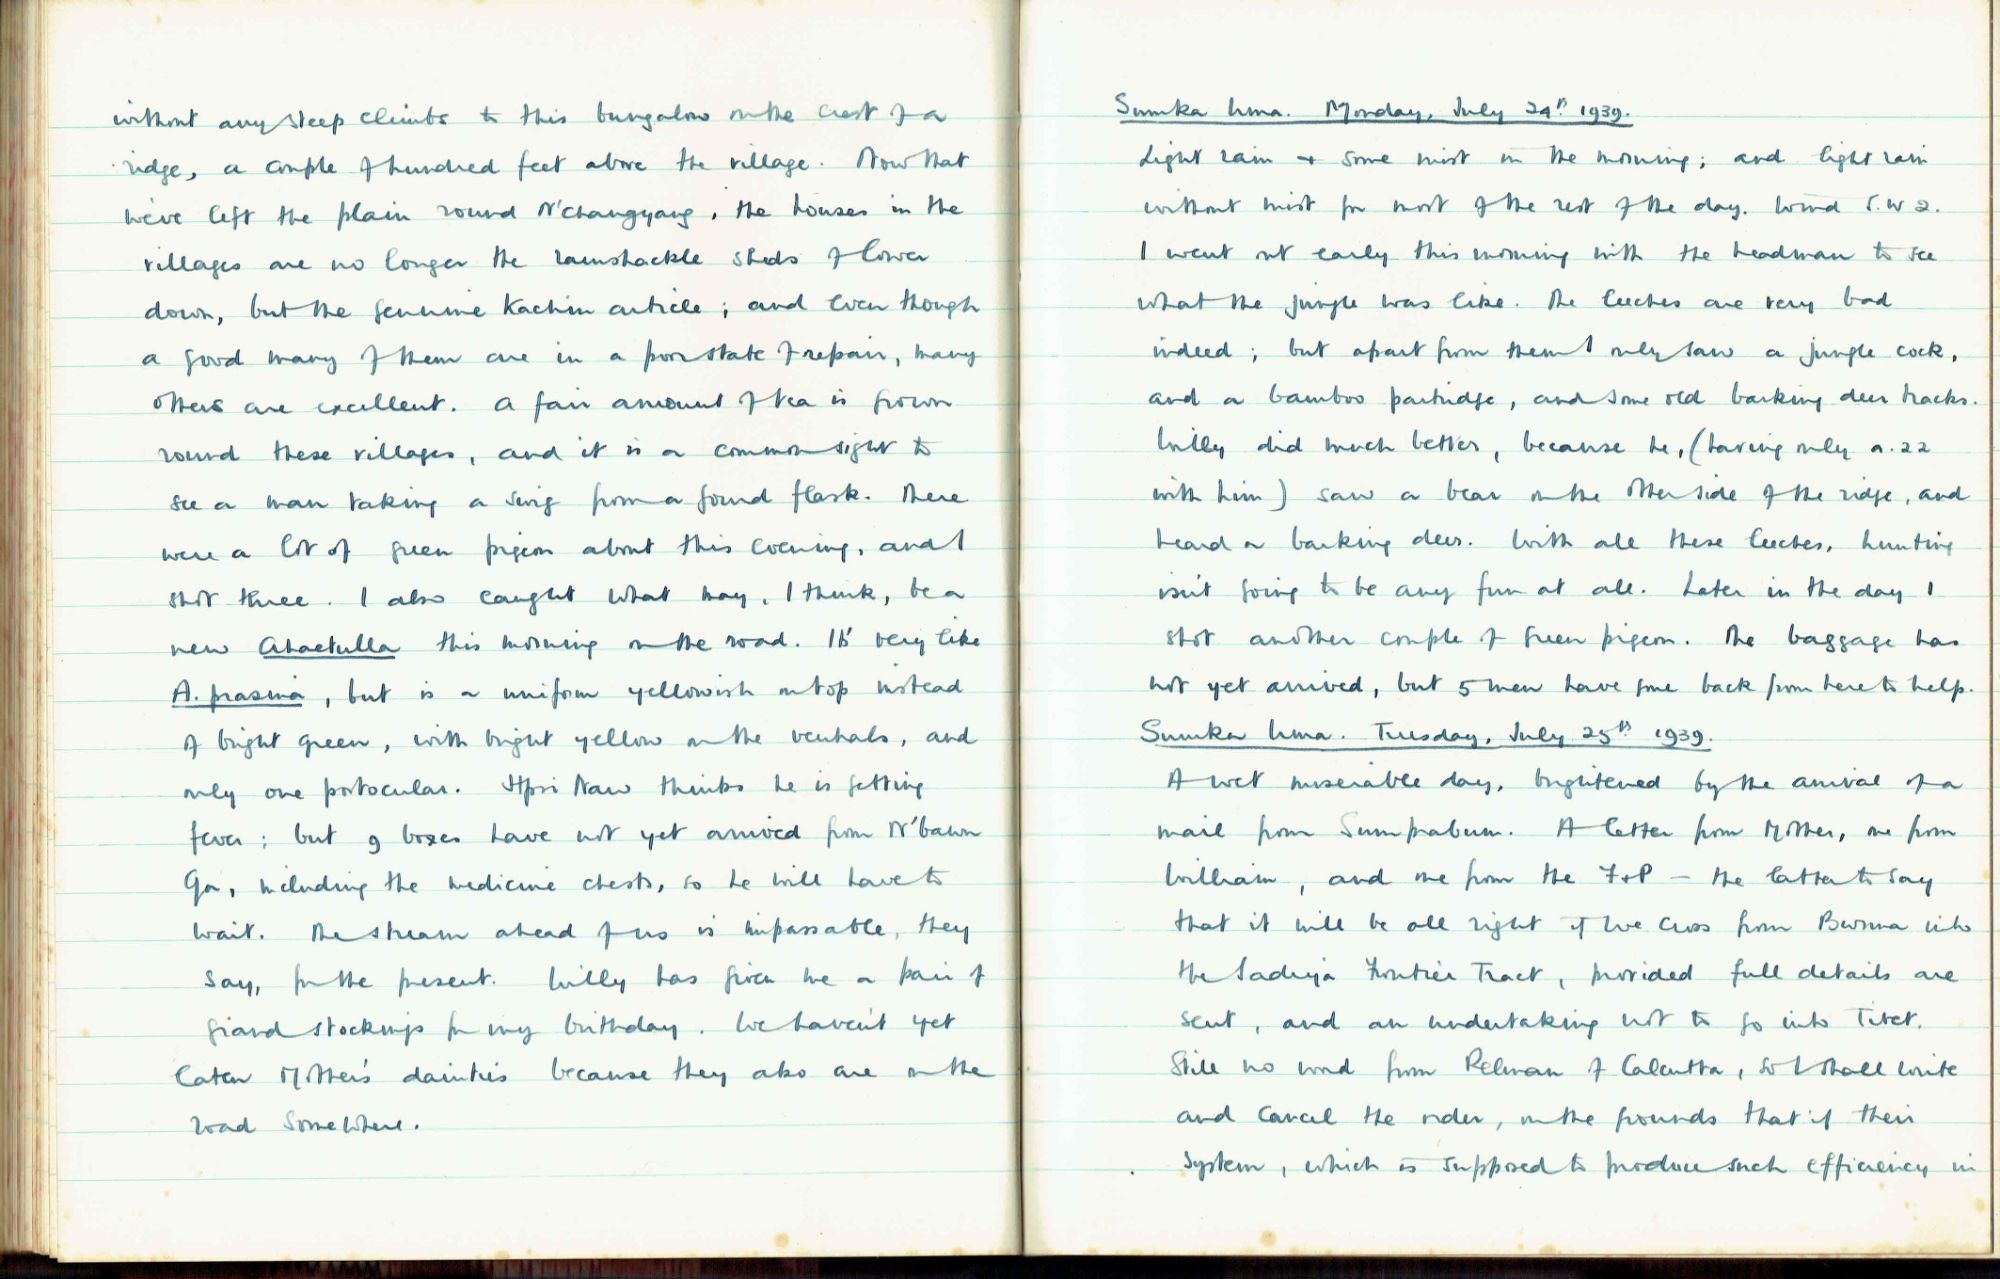 without any steep climbs to this bungalow on the crest of a
ridge, a couple of hundred feet above the village. Now that
we've left the plain round N'changyang, the houses in the
villages are no longer the ramshackle sheds of lower
down, but the genuine Kachin article; and even though
a good many of them are in a poor state of repair, many
others are excellent. A fair amount of tea is grown
round these villages, and it is a common sight to
see a man taking a swig from a gourd flask. There
were a lot of green pigeon about this evening, and I
shot three. I also caught what may, I think, be a
new Ahaetulla this morning on the road. It's very like
A. prasina, but is a uniform yellowish on top instead
of bright green, with bright yellow on the ventrals, and
only one postocular. Htpri Naw thinks he is getting
fever; but 9 boxes have not yet arrived from N'bawn
Ga, including the medicine chests, so he will have to
wait. The stream ahead of us is impassable, they
say, for the present. Willy has given me a pair of
grand stockings for my birthday. We haven't yet
eaten Mother's dainties because they also are on the
road somewhere.
Sumka Uma. Monday, July 24th. 1939.
Light rain + some mist in the morning; and light rain
without mist for most of the rest of the day. Wind S.W 2.
I went out early this morning with the headman to see
what the jungle was like. The leeches are very bad
indeed; but apart from them I only saw a jungle cock,
and a bamboo partridge, and some old barking deer tracks.
Willy did much better, because he, (having only a .22
with him) saw a bear on the other side of the ridge, and
heard a barking deer. With all these leeches, hunting
isn't going to be any fun at all. Later in the day I
shot another couple of green pigeon. The baggage has
not yet arrived, but 5 men have gone back from here to help.
Sumka Uma. Tuesday, July 25th. 1939.
A wet miserable day, brightened by the arrival of a
mail from Sumprabum. A letter from Mother, one from
William, and one from the F+P – the latter to say
that it will be all right if we cross from Burma into
the Sadiya Frontier Tract, provided full details are
sent, and an undertaking not to go into Tibet.
Still no word from Relman of Calcutta, so I shall write
and cancel the order, on the grounds that if their
system, which is supposed to produce such efficiency in